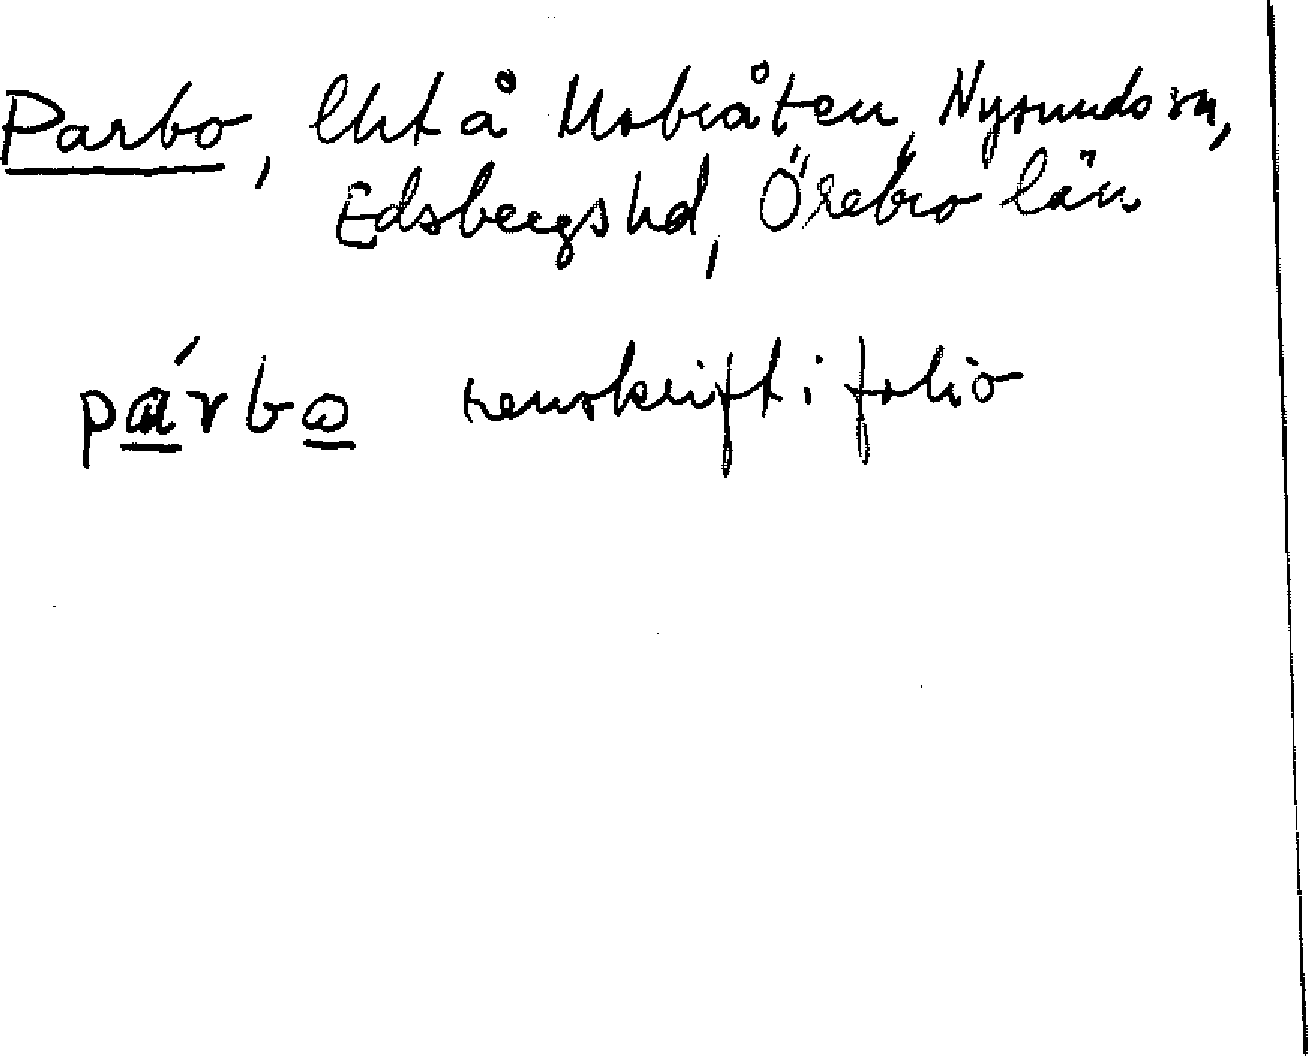 Parbo, lht å Mobråten, Nysunds sn,
Edsbergs hd, Örebro län
párbo renskrift i folio